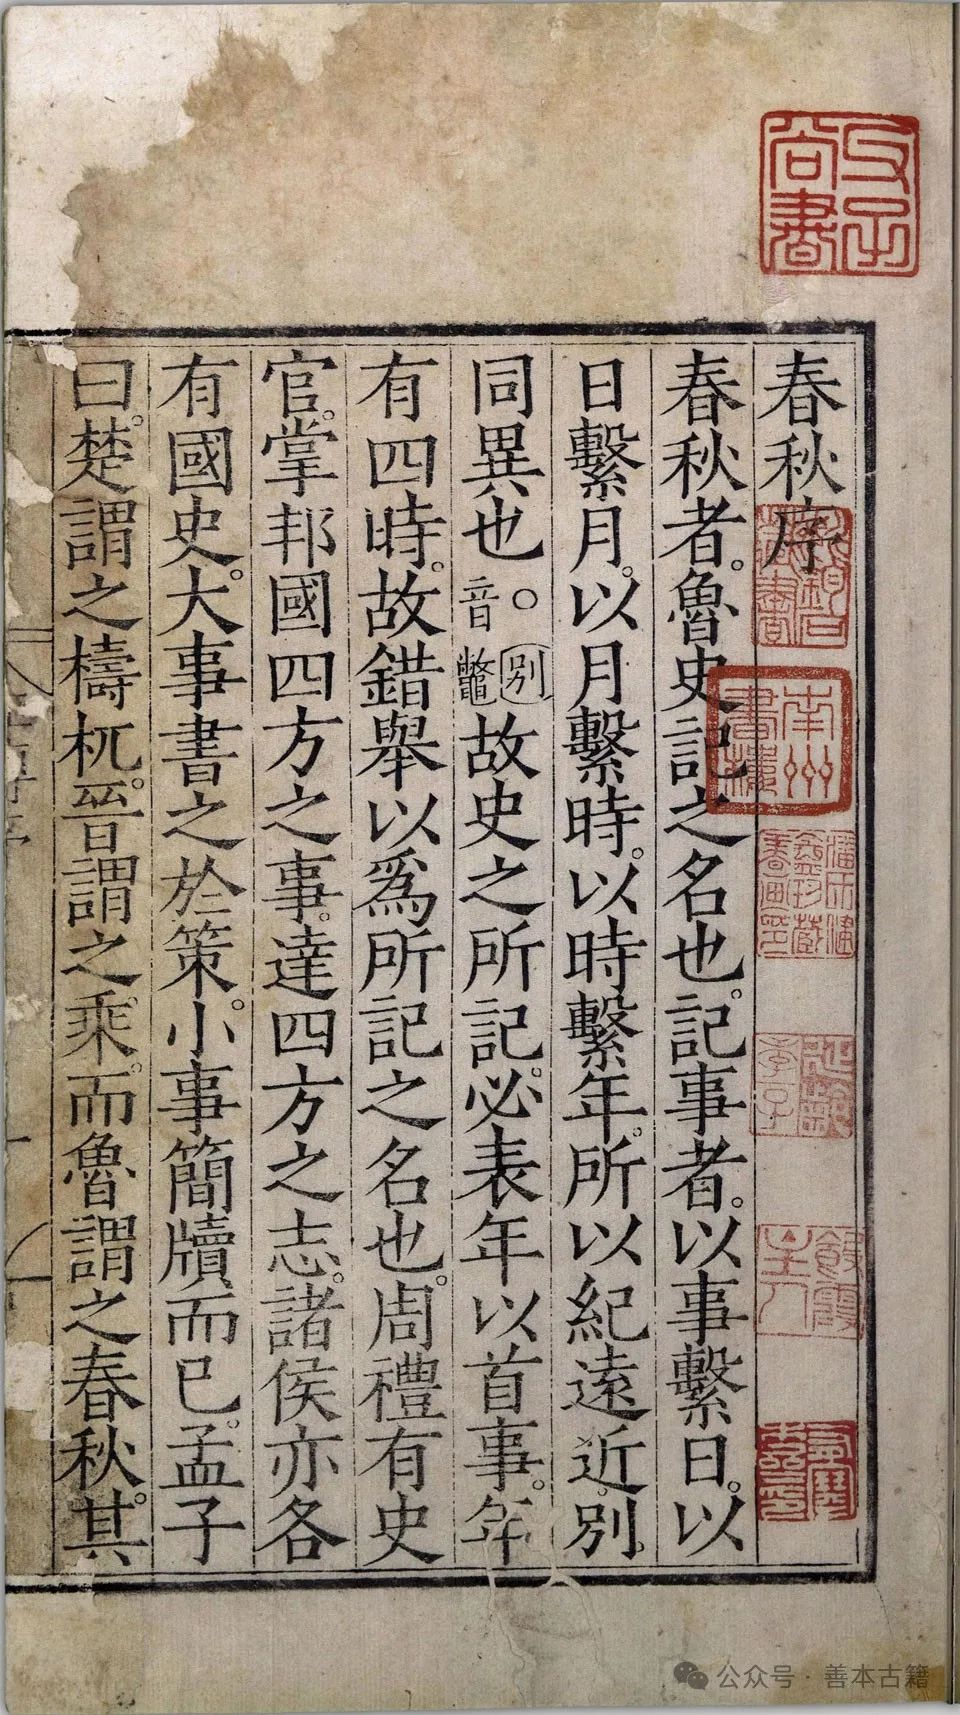 春秋序
春秋者。魯史記之名也。記事者。以事繫日。以
日繫月。以月繫時。以時繫年。所以紀遠近。別
同異也○音別鼈故史之所記。必表年以首事。年
有四時。故錯舉以爲所記之名也。周禮有史
官。掌邦國四方之事。達四方之志。諸侯亦各
有國史。大事書之於策。小事簡牘而已。孟子
曰。楚謂之檮杌。晉謂之乘。而魯謂之春秋。其
尚書
南州書樓
藏書
公众号·善本古籍